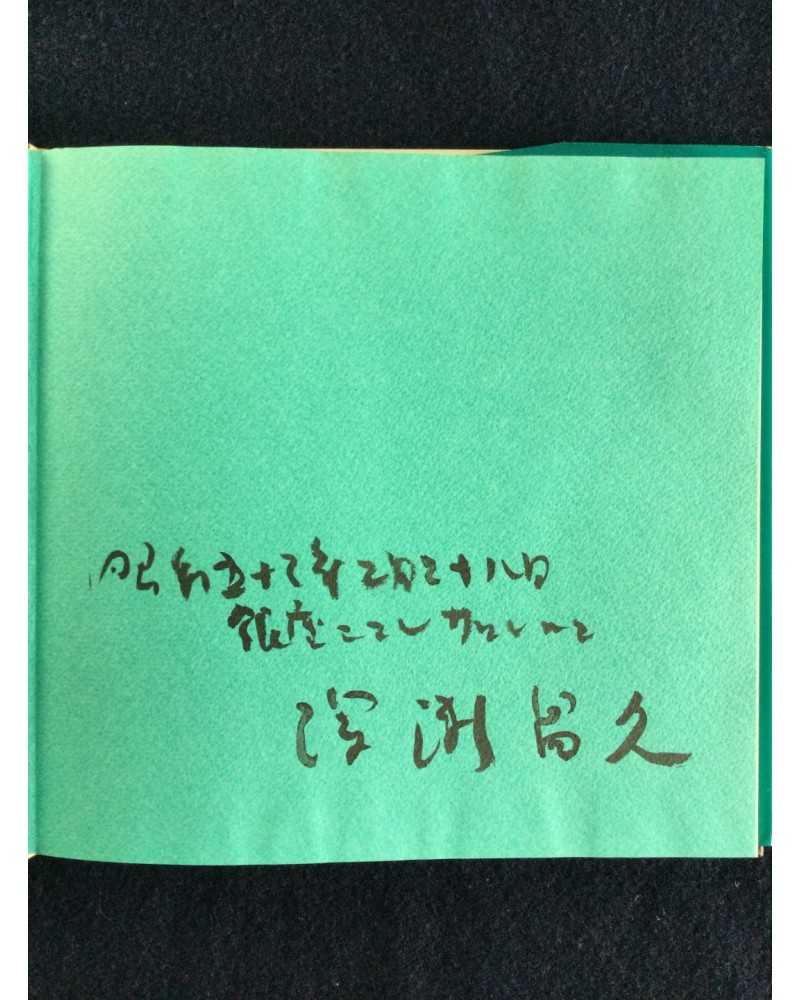 昭和五十三年二月二十八日
銀座ニコンサロンにて
深瀬昌久